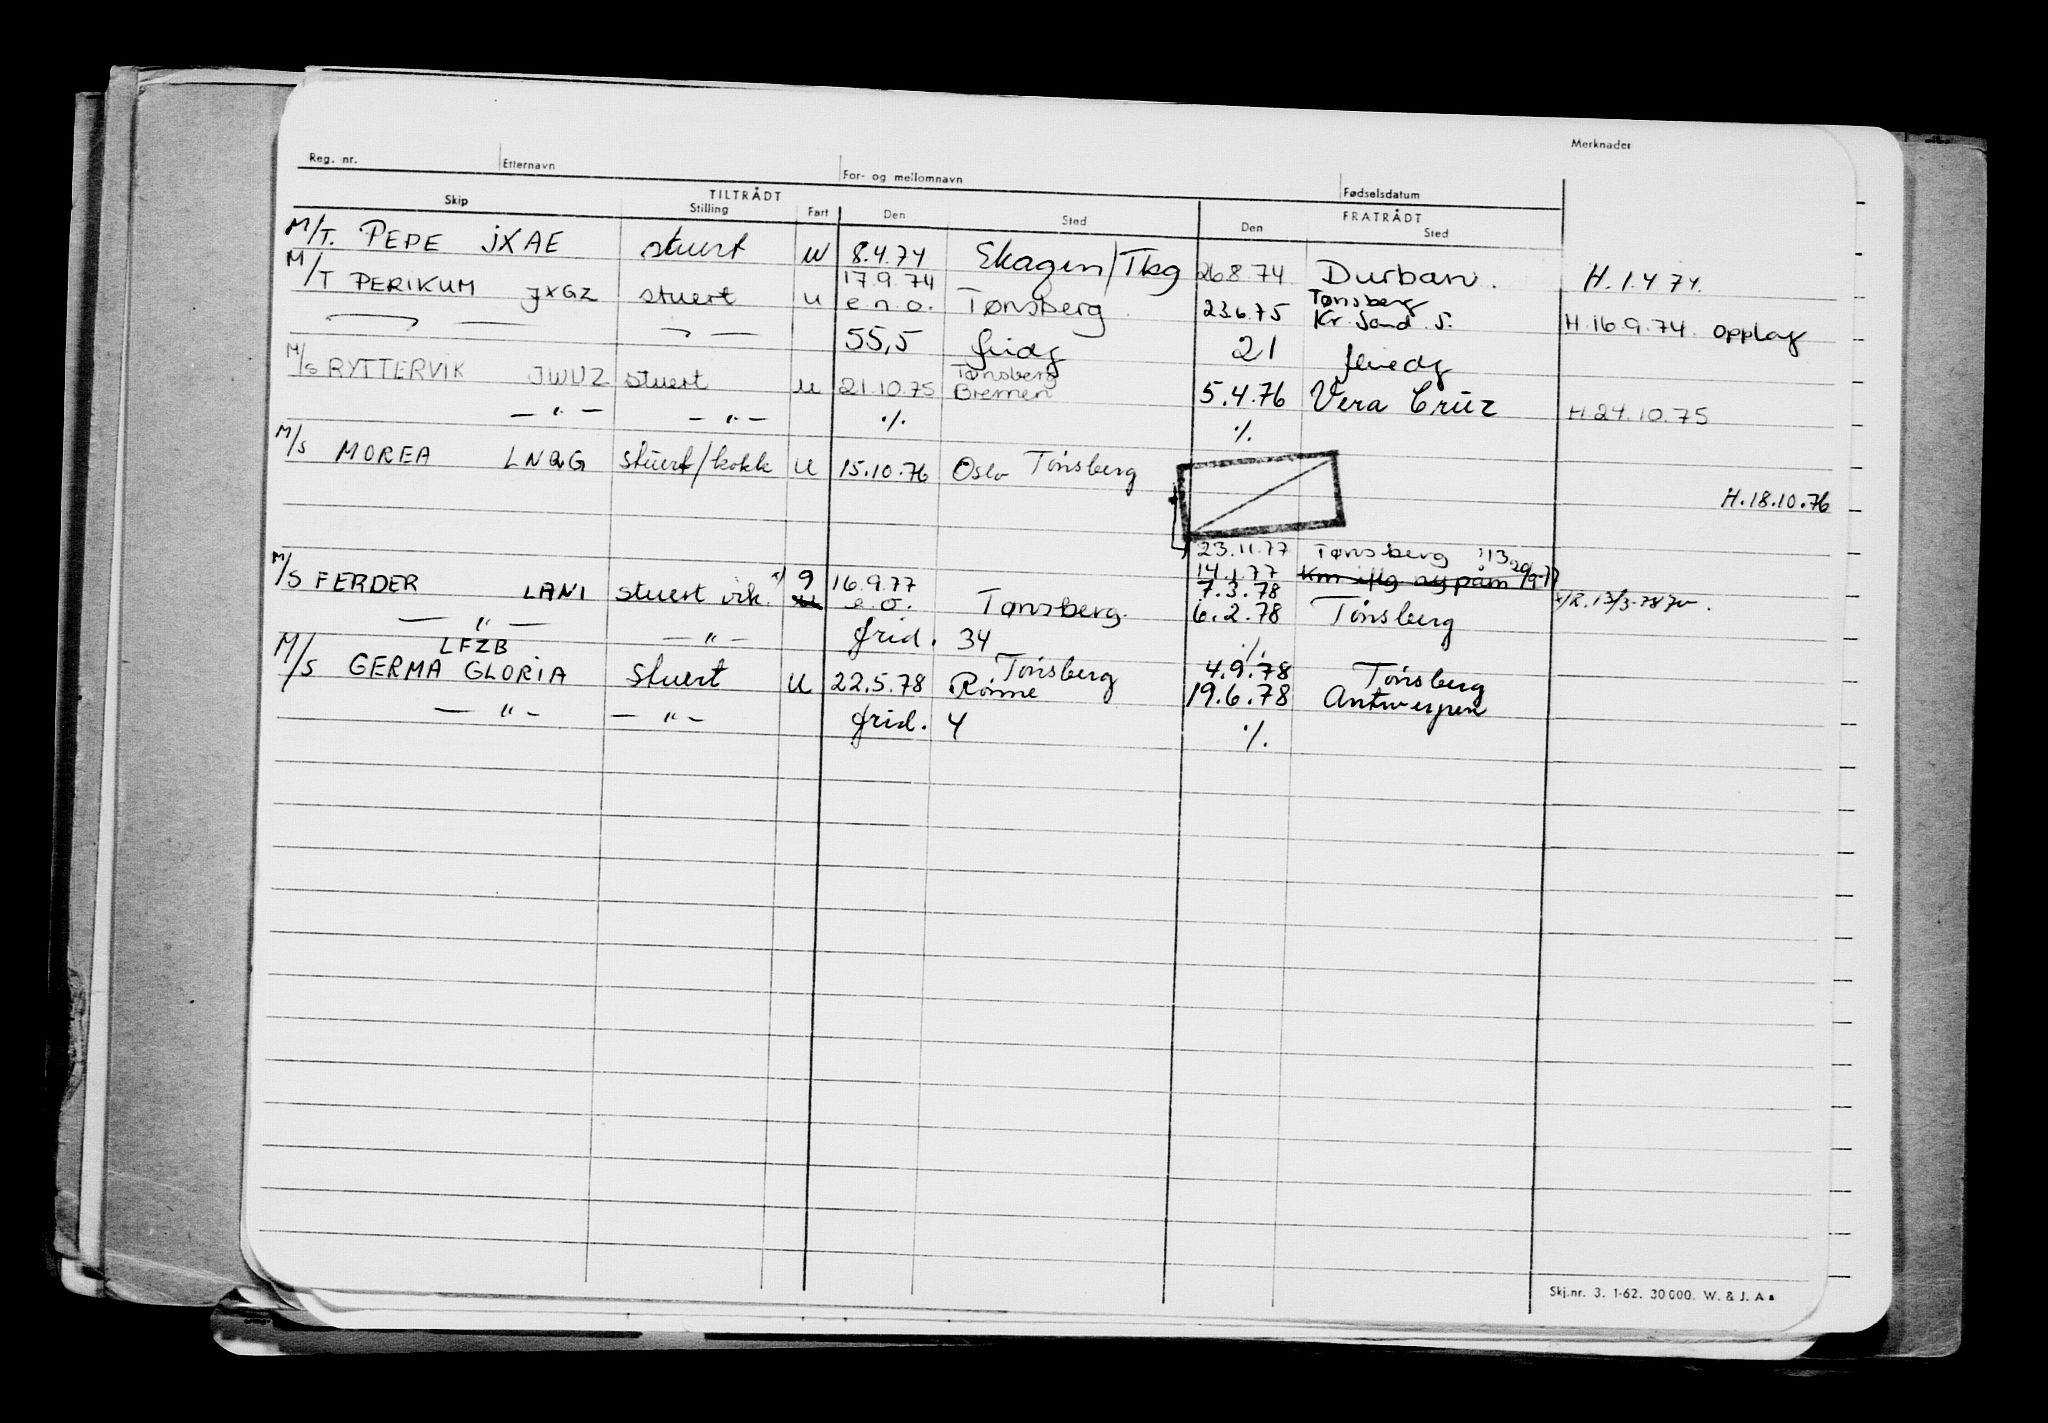 Merknader
Reg. nr. Etternavn For- og mellomnavn Fødselsdatum
TILTRÅDT FRATRÅDT
Skip Stilling Fart Den Sted Den Sted
M/T. PEPE JXAE stuert 8.4.74 Skagen/Tbg 26.8.74 Durban. H. 1.4 74.
17.9.74 Tønsberg
M/T PERIKUM JXGZ stuert u e.n.o. Tønsberg 23.6.75 Kr. Sand. S. H. 16.9.74. Opplag
55,5 fridg 21 feriedg
Tønsberg
M/S RYTTERVIK JWUZ stuert u 21.10.75 Bremen 5.4.76 Vera Cruz H. 24.10.75
— " — — " — ./. ./.
M/S MOREA LNQG stuert/kokk u 15.10.76 Oslo Tönsberg
H. 18.10.76
23.11.77 Tønsberg
9 16.9.77 14.1.77 7.3.78
M/S FERDER LANI stuert vik. e.o. Tønsberg. 6.2.78 Tönsberg
— " — — " — frid. 34 ./.
LFZB Tönsberg 4.9.78 Tönsberg
M/S GERMA GLORIA Stuert u 22.5.78 Rönne 19.6.78 Antwerpen
— " — — " — frid. 4 ./.
Skj.nr. 3. 1-62. 30 000. W. & J. A s